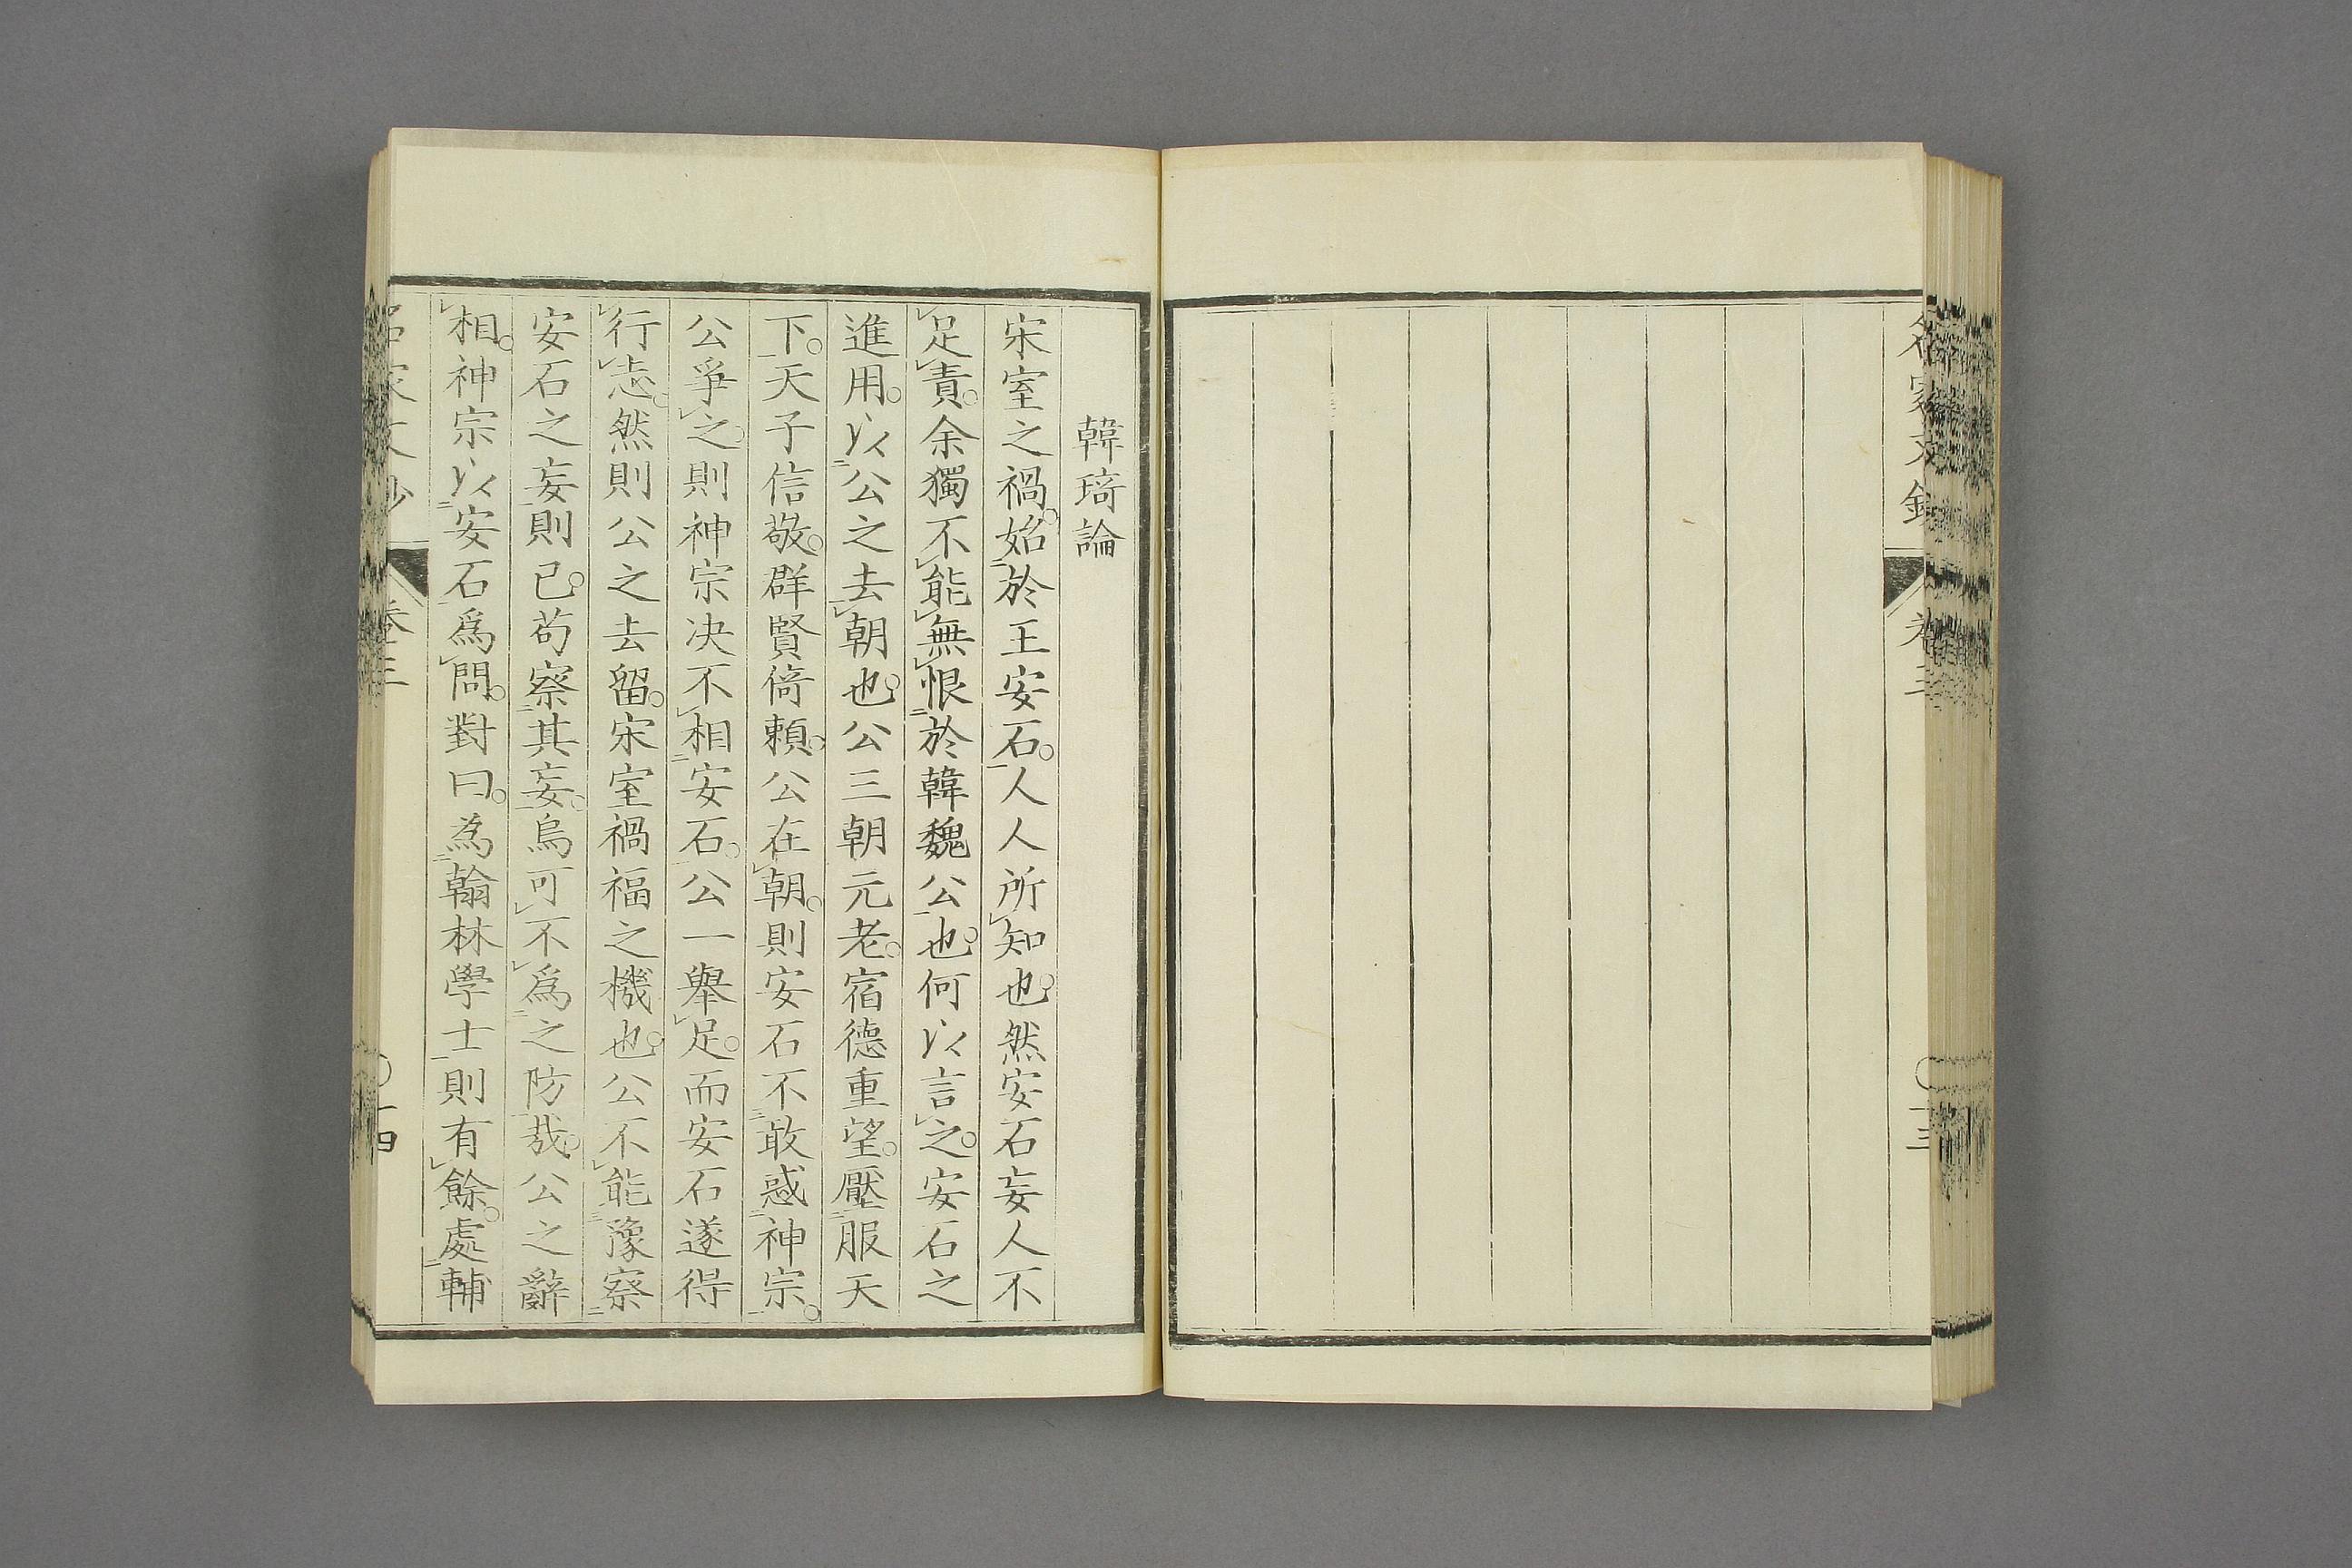 韓琦論
宋室之禍。始於王安石。人人所知也。然安石妄人不
足責。余獨不能無恨於韓魏公也。何以言之。安石之
進用。以公之去朝也。公三朝元老。宿德重望。壓服天
下。天子信敬。群賢倚頼。公在朝。則安石不敢惑神宗。
公爭之。則神宗决不相安石。公一舉足。而安石遂得
行志。然則公之去留。宋室禍福之機也。公不能豫察
安石之妄則已。苟察其妄。烏可不爲之防哉。公之辭
相。神宗以安石爲問。對曰。為翰林學士則有餘。處輔